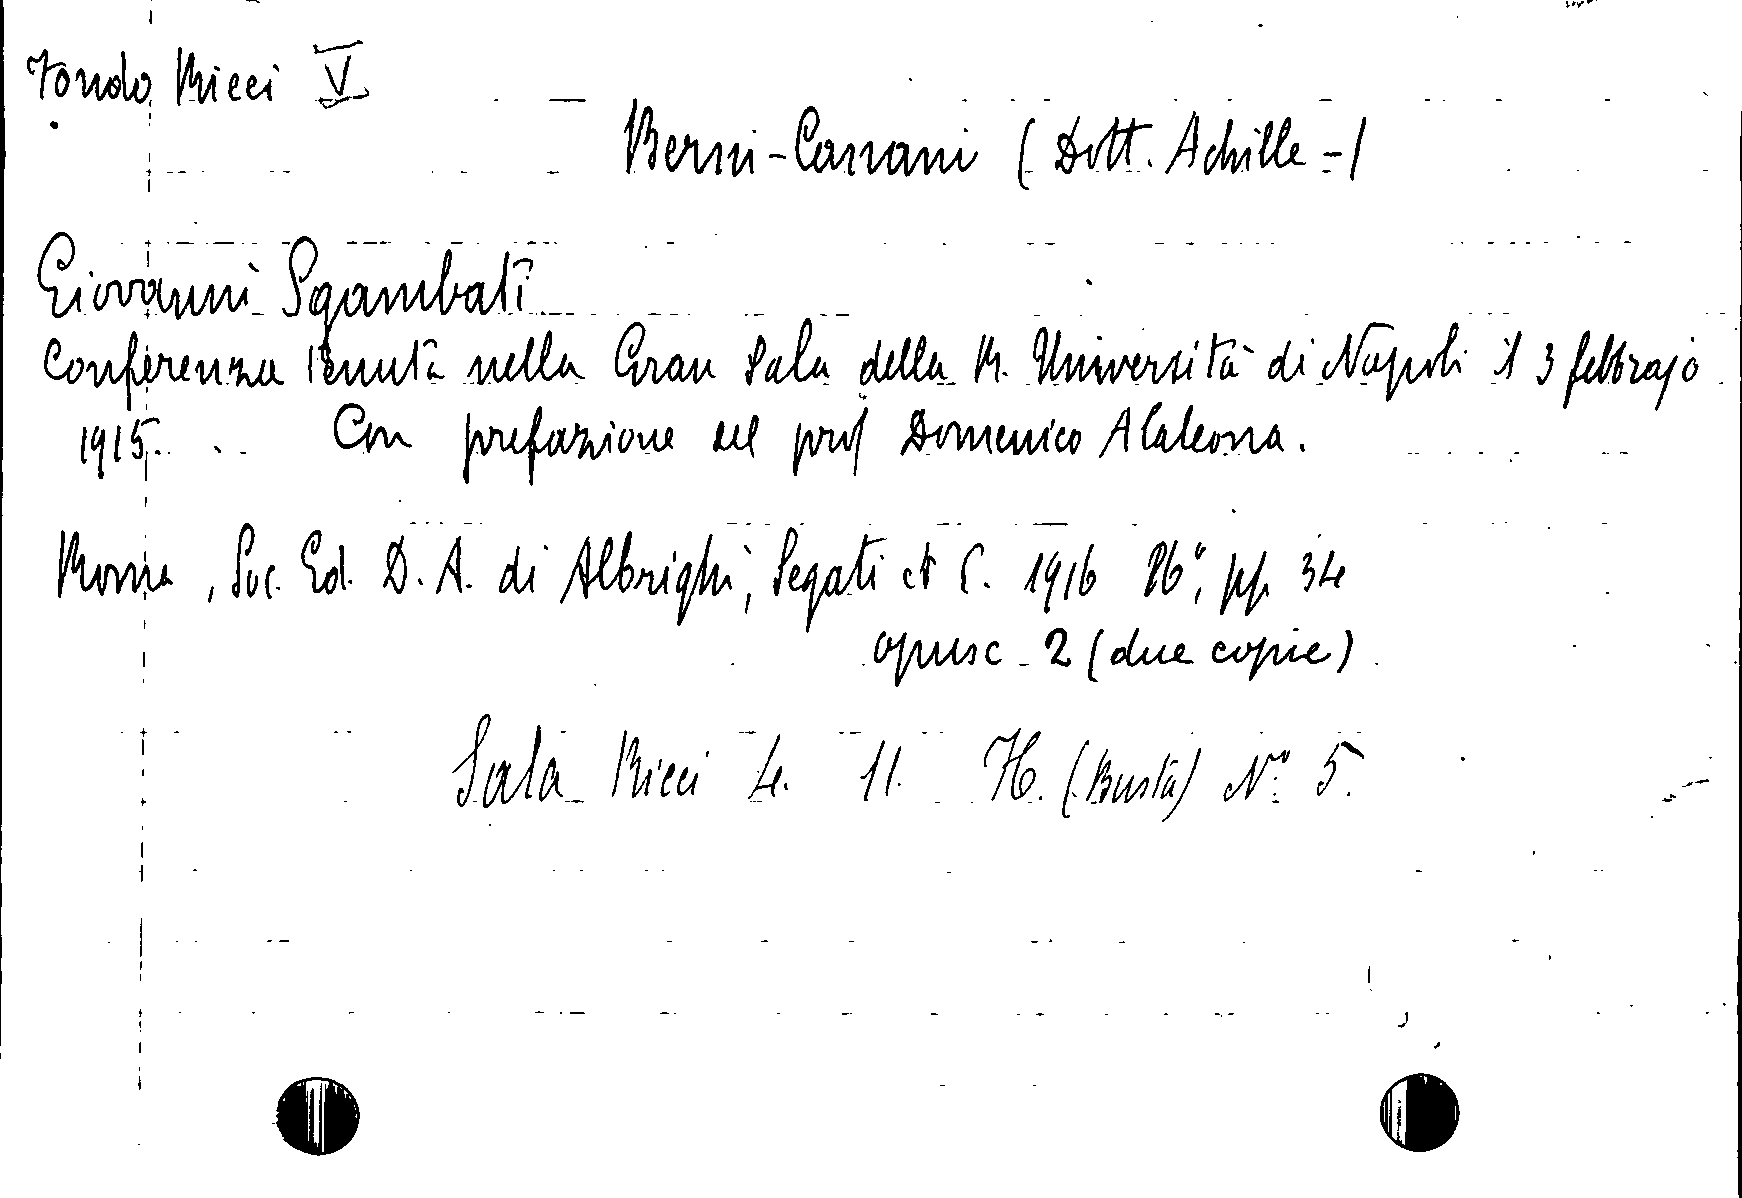 Fondo Ricci V
Berni-Canani (Dott. Achille -)
Giovanni Sgambati
Conferenza tenuta nella Gran Sala della R. Università di Napoli il 3 febbrajo
1915. Con prefazione del prof Domenico Alaleona.
Roma, Soc. Ed. D. A. di Albrighi, Segati et C. 1916 16°, pp. 34
opusc 2 (due copie)
Sala Ricci 4. 11. H. (Busta) N° 5.